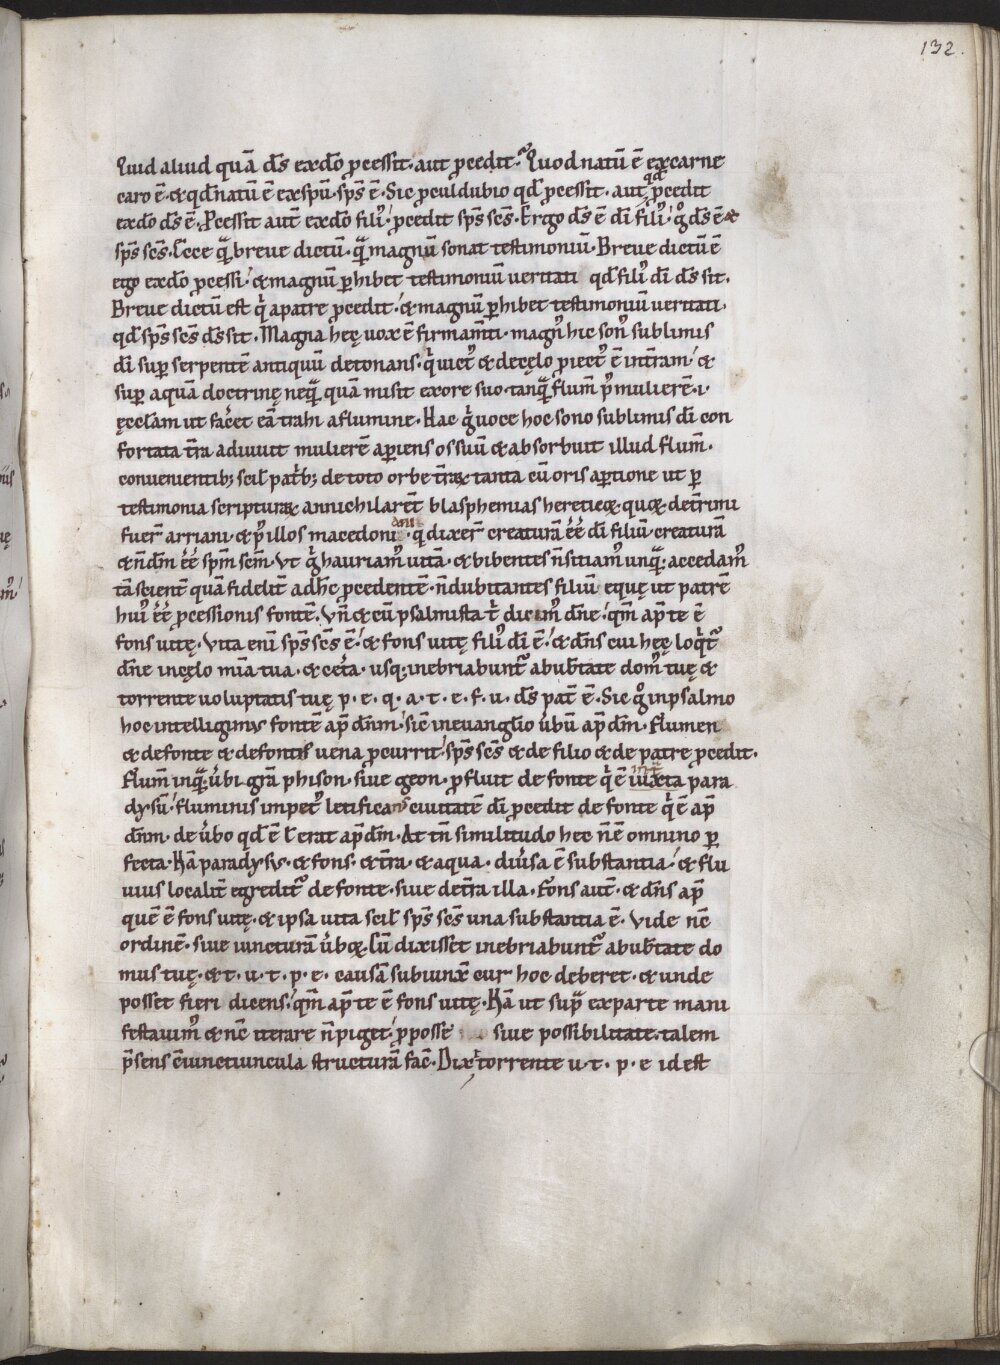 132.
Quid aliud quā d̄s exdō pcessit· aut pcedit? Quod natū ē excarne
caro ē· & qd̄ natū ē exspū· sp̄s ē· Sic pculdubio qd̄ pcessit· aut pcedit
exdō d̄s ē· Pcessit aut̄ exdō filiꝰ· pcedit sp̄s sc̄s· Ergo d̄s ē dī filiꝰ· gͦ d̄s ē &
sp̄s sc̄s· Ecce q̄ breve dictū· q̄ magnū sonat testimoniū· Breve dictū ē
ego exdō pcessi· & magnū ꝑhibet testimoniū veritati qd̄ filiꝰ dī d̄s sit·
Breve dictū est qͥ apatre pcedit· & magnū ꝑhibet testimoniū veritati·
qd̄ sp̄s sc̄s d̄s sit· Magna hęc vox ē firmam̄ti· magnꝰ hic sonꝰ sublimis
dī suꝑ serpentē antiquū detonans· qͥ uictꝰ & decęlo piectꝰ ē int̄ram· &
suꝑ aquā doctrinę neq̄quā misit exore suo· tanq̄ flum̄ pꝰ mulierē· i·
ęccl̄am ut facͤet eā trahi aflumine· Hac gͥ voce hoc sono sublimis dī con
fortata t̄ra adiuvit mulierē aꝑiens os suū & absorbuit illud flum̄·
convenientibꝫ scil̄ patͥbꝫ de toto orbe t̄raꝝ tanta cū oris aꝑtione ut ꝑ
testimonia scripturaꝝ annichilarēt blasphemias hereticoꝝ quoꝝ det̄rimi
fuer̄ arriani· & pꝰ illos macedoni · q dixer̄ creaturā eē dī filiū· creaturā
& n̄ dm̄ eē spm̄ scm̄· Vt gͥ hauriamꝰ vitā· & bibentes n̄ sitiamꝰ unq̄· accedamꝰ
tā scient̄ quā fidelit̄ adhc̄ pcedentē· n̄ dubitantes filiū equę ut patrē
huiꝰ eē pcessionis fontē· Vn̄ & cū psalmista t̄ dicimꝰ dn̄e· qm̄ ap̄ te ē
fons vitę· Vita eni sp̄s sc̄s ē· & fons vitę filiꝰ dī ē· & dn̄s cui hęc loqͥtꝰ
dn̄e incęlo mīa tua· & cet̄a· usqꝫ inebriabuntͬ abub̄tate domꝰ tuę &
torrente voluptatis tuę p· e· q· a· t· e· f· v· d̄s pat̄ ē· Sic gͦ inpsalmo
hoc intelligimꝰ fontē ap̄ dn̄m· sic̄ inevangl̄io v̄bū ap̄ dm̄· Flumen
& defonte & defontis vena pcurrit· sp̄s sc̄s & de filio & de patre pcedit·
Flum̄ inq̄· ubi gr̄a phison· sive geon· ꝓfluit de fonte qͥ ē iuxta para
dysū· fluminis impetꝰ letificans civitatē dī pcedit de fonte qͥ ē ap̄
dn̄m· de v̄bo qd̄ ē l̄ erat ap̄ dm̄· At tn̄ similitudo hec n̄ ē omnino ꝑ
fecta· Nā paradysus· & fons· & t̄ra· & aqua· div̄sa ē substantia· & flu
vius localit̄ egreditꝰ de fonte· sive det̄ra illa· Fons aut̄· & dn̄s ap̄
quē ē fons vitę· & ipsa vita scil̄ sp̄s sc̄s una substantia ē· Vide nc̄
ordinē· sive iuncturā v̄boꝝ· Cū dixisset inebriabuntͬ abub̄tate do
mus tuę· & t· v· t· p· e· causā subiunxͭ cur hoc deberet· & unde
posset fieri dicens· qm̄ ap̄ te ē fons vitę· Nā ut sup̄ exparte mani
festavimꝰ & nc̄ iterare n̄ piget· ꝓposse sive possibilitate· talem
p̄sens cōiunctiuncula structurā fac̄· Dixͭ torrente v· t· p· e id est